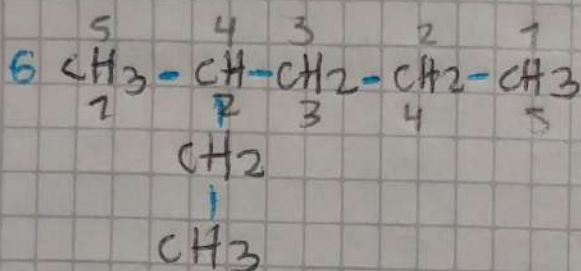 5 4 3 2 1
6 CH3-CH-CH2-CH2-CH3
1 2 3 4 5
CH2
CH3